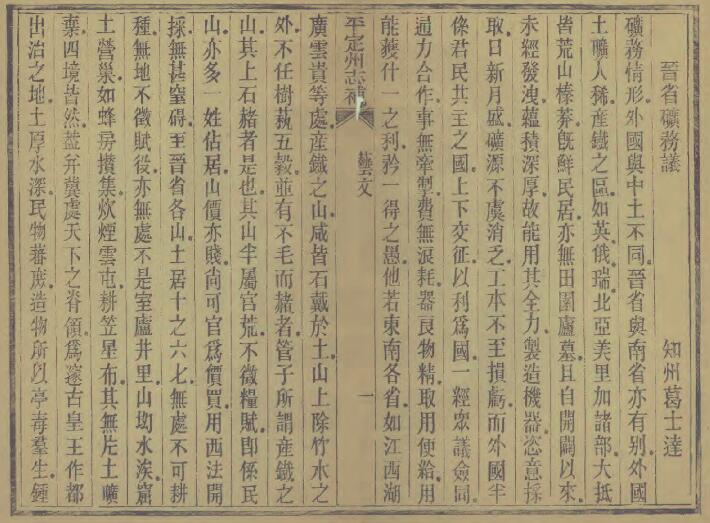 晉省礦務議
知州葛士達
礦務情形外國與中土不同晉省與南省亦有別外國
土礦人稀產鐵之區如英俄瑞北亞美里加諸部大抵
皆荒山榛莽旣鮮民居亦無田園廬墓且自開闢以來
未經發洩蘊積深厚故能用其全力製造機器恣意採
取日新月盛礦源不虞消乏工本不至損虧而外國半
係君民共主之國上下交征以利爲國一經眾議僉同
通力合作事無牽掣費無浪耗器良物精取用便給用
能獲什一之利矜一得之愚他若東南各省如江西湖
平定州志補
藝文
一
廣雲貴等處產鐵之山咸皆石戴於土山上除竹木之
外不任樹蓺五穀並有不毛而赭者管子所謂產鐵之
山其上石赭者是也其山半屬官荒不徵糧賦即係民
山亦多一姓佔居山價亦賤尚可官爲價買用西法開
採無甚窒礙至晉省各山土居十之六七無處不可耕
種無地不徵賦役亦無處不是室廬井里山坳水涘窟
土營巢如蜂房攢集炊煙雲屯耕笠星布其無片土曠
棄四境皆然蓋幷冀處天下之脊領爲邃古皇王作都
出治之地土厚水深民物蕃庶造物所以亭毒羣生鍾